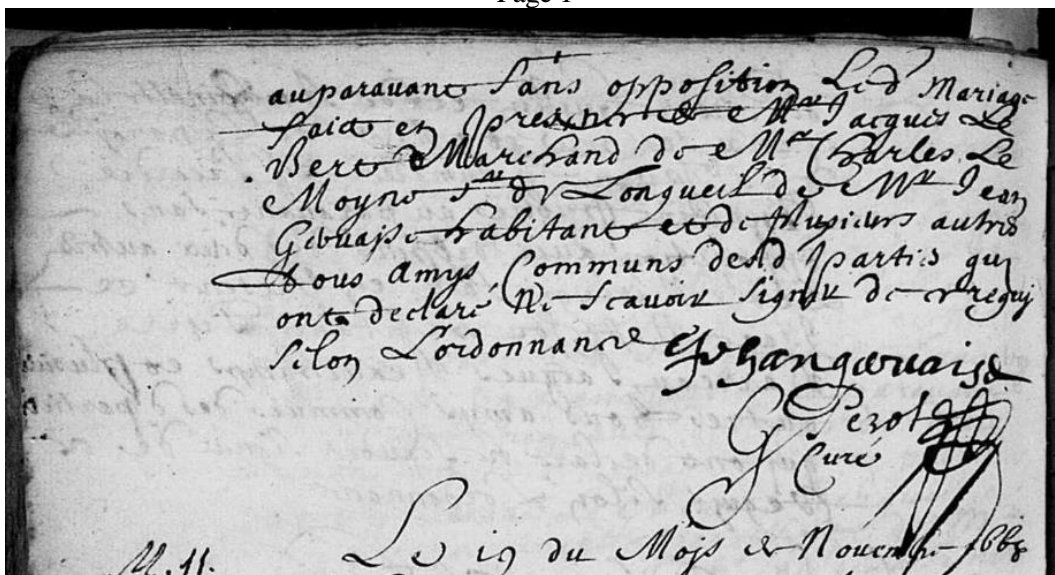 Page 1
auparauant sans opposition Led Mariage
faict en presence de Mre Jacques Le
Bert Marchand de Mre Charles Le
Moyne sr de Longueil de Mre Jean
Geruaise habitant et de plusieurs autres
tous amys Communs desd parties qui
ont declaré Ne scauoir signer de ce requis
selon L'ordonnance Jehan geruaise
G Perot
Curé
M. 11. Le 19 du Mois de Nouembre 1668